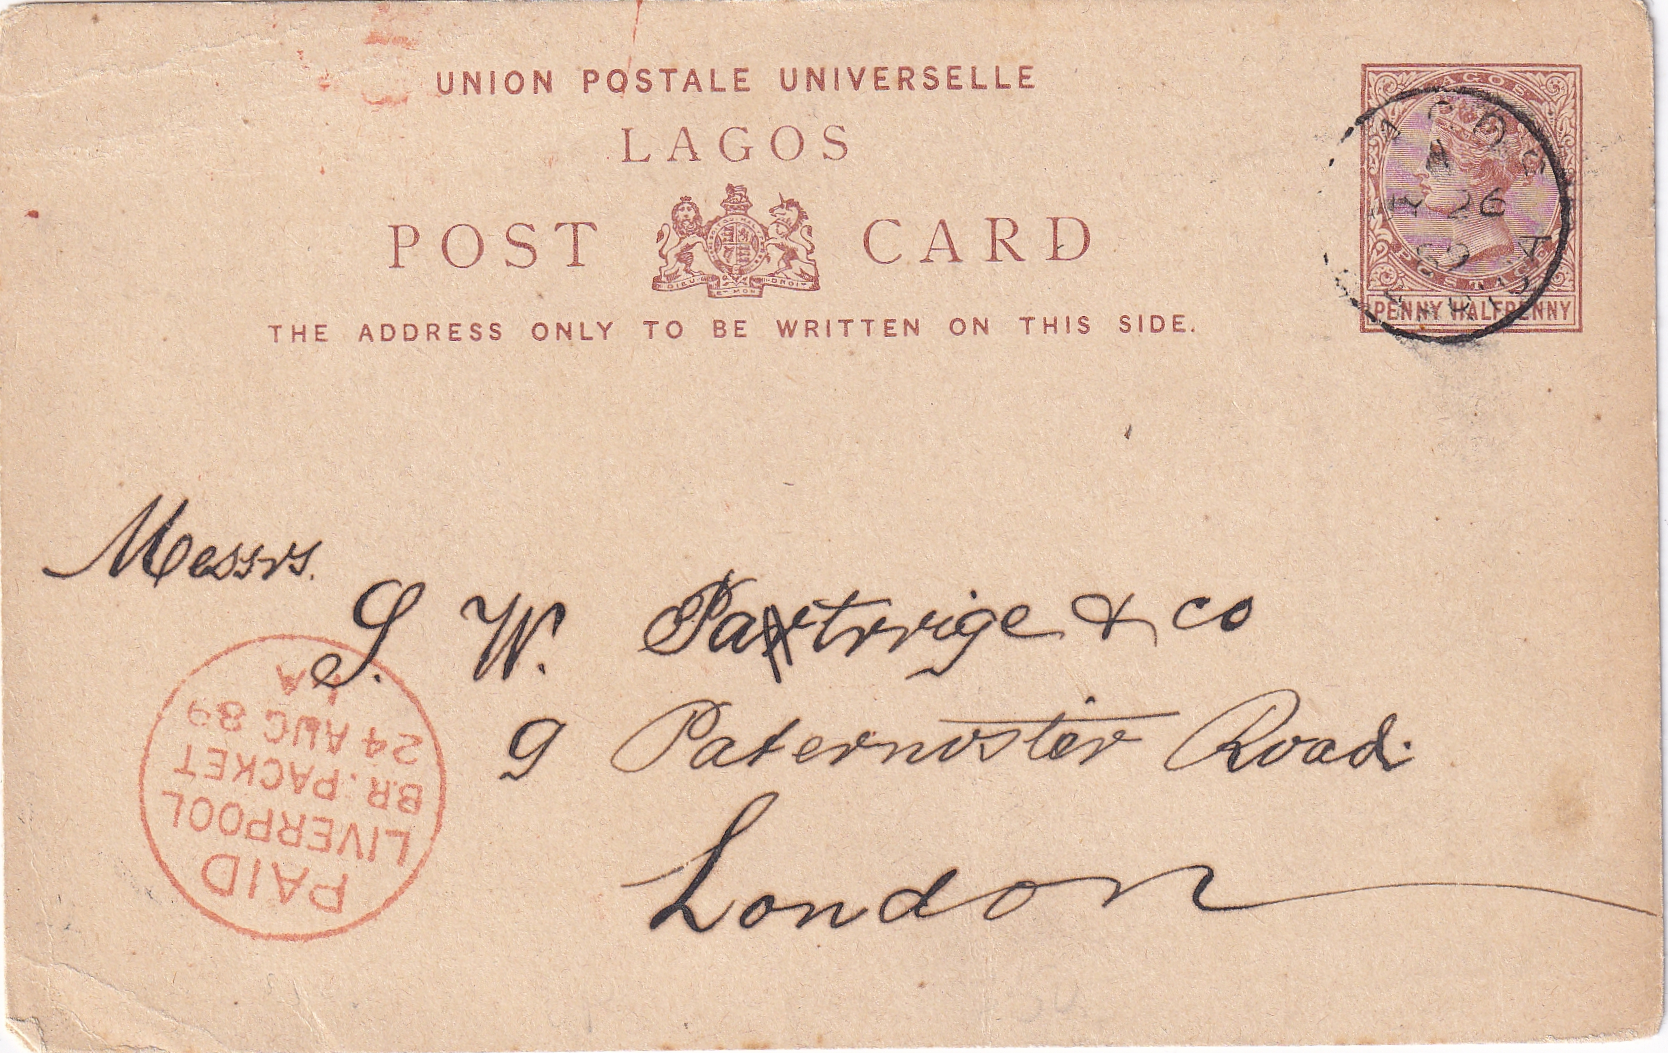 UNION POSTALE UNIVERSELLE
LAGOS
POST CARD
DIEU ET MON DROIT
THE ADDRESS ONLY TO BE WRITTEN ON THIS SIDE.
LAGOS
POSTAGE
PENNY HALFPENNY
A
26
Messrs.
S. W. Partrrige & co
9 Paternoster Road.
London
PAID
LIVERPOOL
BR. PACKET
24 AUG 89